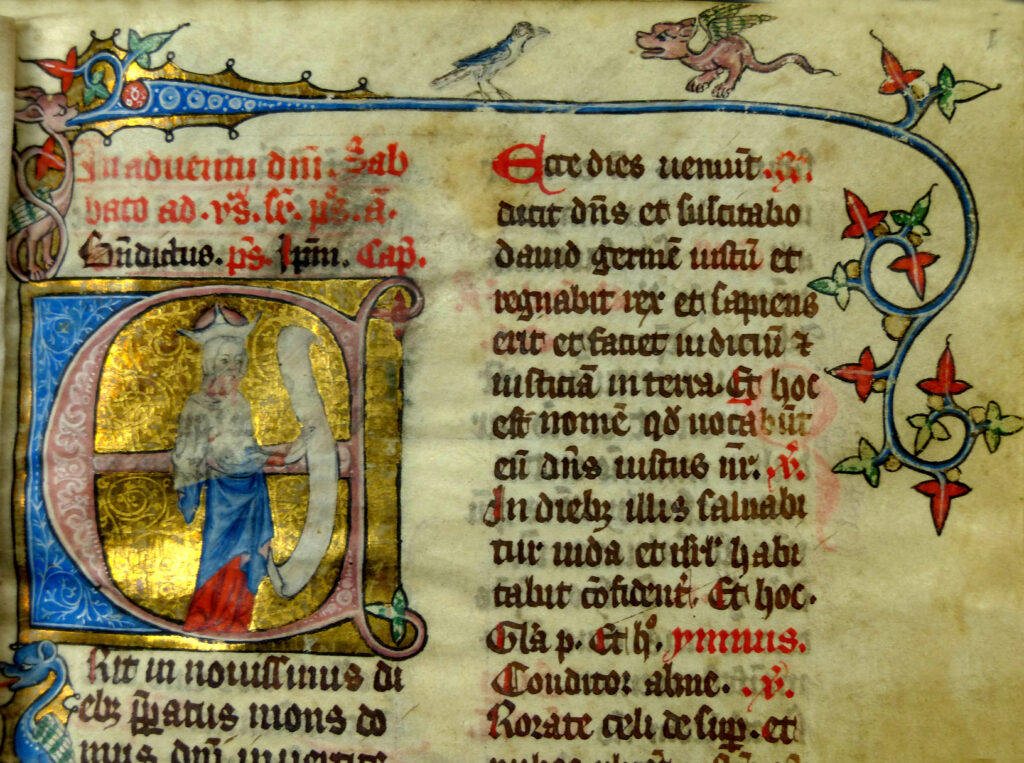 In adventu dn̄i. Sab
bato ad. vs̄. sc̄. ps̄. ā.
Bn̄dictus. ps̄. Ipm̄. Cap̄.
Erit in novissimus di
ebꝫ p̄paratus mons do
mus dn̄i in vertice
Ecce dies veniūt. R̄.
dicit dn̄s et suscitabo
david germē iustū et
regnabit rex et sapiens
erit et faciet iudiciū ⁊
iusticiā in terra. Et hoc
est nomē qd̄ vocabūt
eū dn̄s iustus nr̄. v̄.
In diebꝫ illis salvabi
tur iuda et isrl̄ habi
tabit cōfident̄. Et hoc.
Gl̄a p. Et h°. ymnus.
Conditor alme. v̄.
Rorate celi de sup̄. et